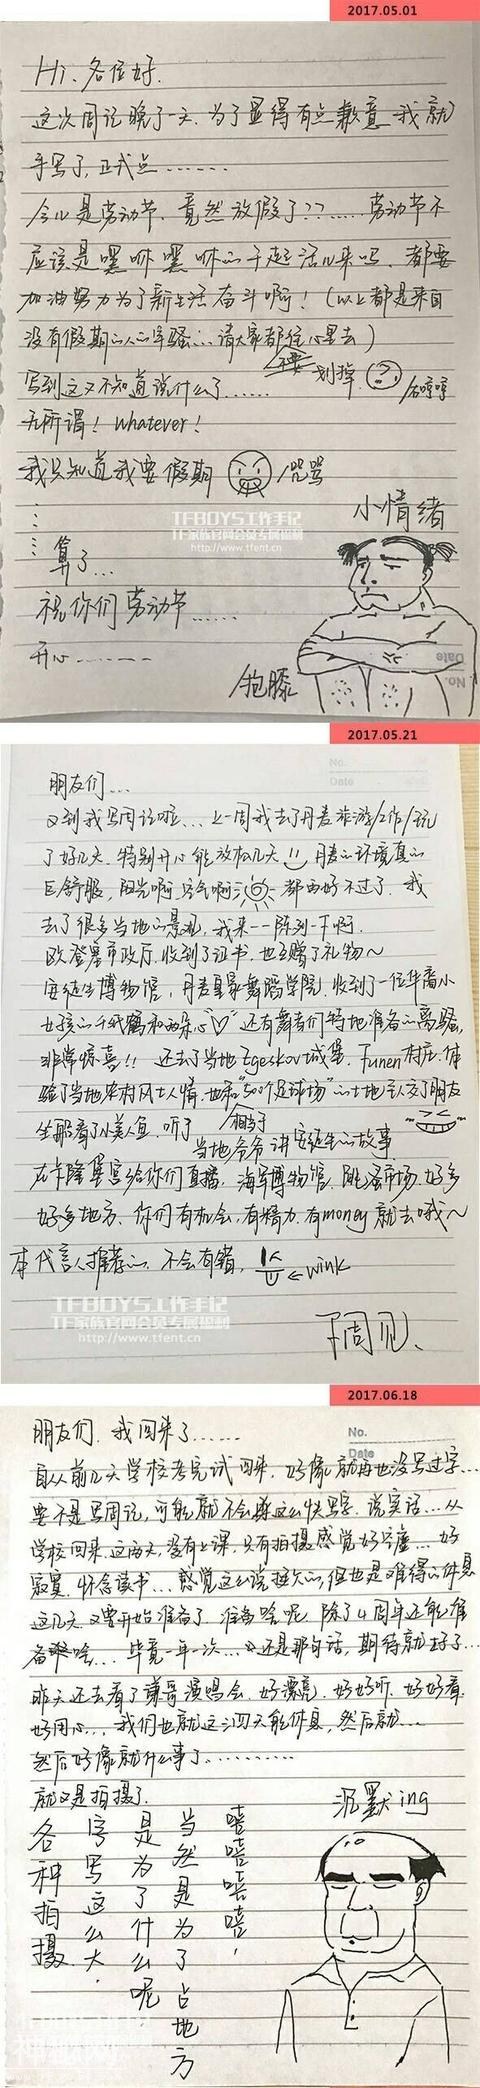 2017.05.01
Hi、各位好.
这次周记晚了一天、为了显得有点歉意 我就
手写了,正式点……
今儿是劳动节、竟然放假了??……劳动节不
应该是嘿咻嘿咻的干起活儿来吗、都要
加油努力为了新生活奋斗啊!(以上都是来自
没有假期的人的牢骚…请大家都往心里去)
不要 划掉
写到这又不知道说什么了…… /气哼哼
无所谓! whatever!
我只知道我要假期 /咒骂
小情绪
TFBOYS工作手记
TF家族官网会员专属福利
http://www.tfent.cn
算了…
祝你们劳动节……
开心………
/抱膝
Date
No.
2017.05.21
No.
Date
朋友们…
又到我写周记啦…上一周我去了丹麦旅游/工作/玩
了好几天.特别开心能放松几天 丹麦的环境真的
巨舒服,阳光啊,空气啊 都再好不过了.我
去了很多当地的景观,我来一一陈列一下啊.
欧登塞市政厅.收到了证书.也互赠了礼物~
安徒生博物馆,丹麦皇家舞蹈学院.收到了一位华裔小
女孩的千纸鹤和两朵心"♡" 还有舞者们特地准备的
非常惊喜!! 还去了当地Egeskov城堡.Funen村庄.体
验了当地农村风土人情.也和"500个足球场"的土地主人交了朋友
/相当于
坐那看了小美人鱼.听了当地爷爷讲安徒生的故事
在卡隆堡宫给你们直播.海军博物馆.跳蚤市场.好多
好多地方.你们有机会,有精力,有money就去哦~
本代言人推荐的.不会有错. ←wink
TFBOYS工作手记
TF家族官网会员专属福利
http://www.tfent.cn
下周见、
2017.06.18
No.
Date
朋友们.我回来了……
自从前几天学校考完试回来.好像就再也没写过字…
要不是写周记,可能就不会这么快写字.说实话…从
学校回来这两天,没有上课,只有拍摄感觉好空虚…好
寂寞.怀念读书…感觉这么说挺欠的,但也是难得的休息
这几天又要开始准备了.准备啥呢.除了4周年还能准
备啥…毕竟一年一次…还是那句话,期待就好了…
昨天还去看了谦哥演唱会.好漂亮.好好听.好好看.
好用心…我们也就这三四天能休息,然后就…
然后好像就什么事了…………
就又是拍摄了.
沉默ing
各种拍摄.
字写这么大,
是为了什么呢
当然是为了占地方
嘻嘻嘻嘻,